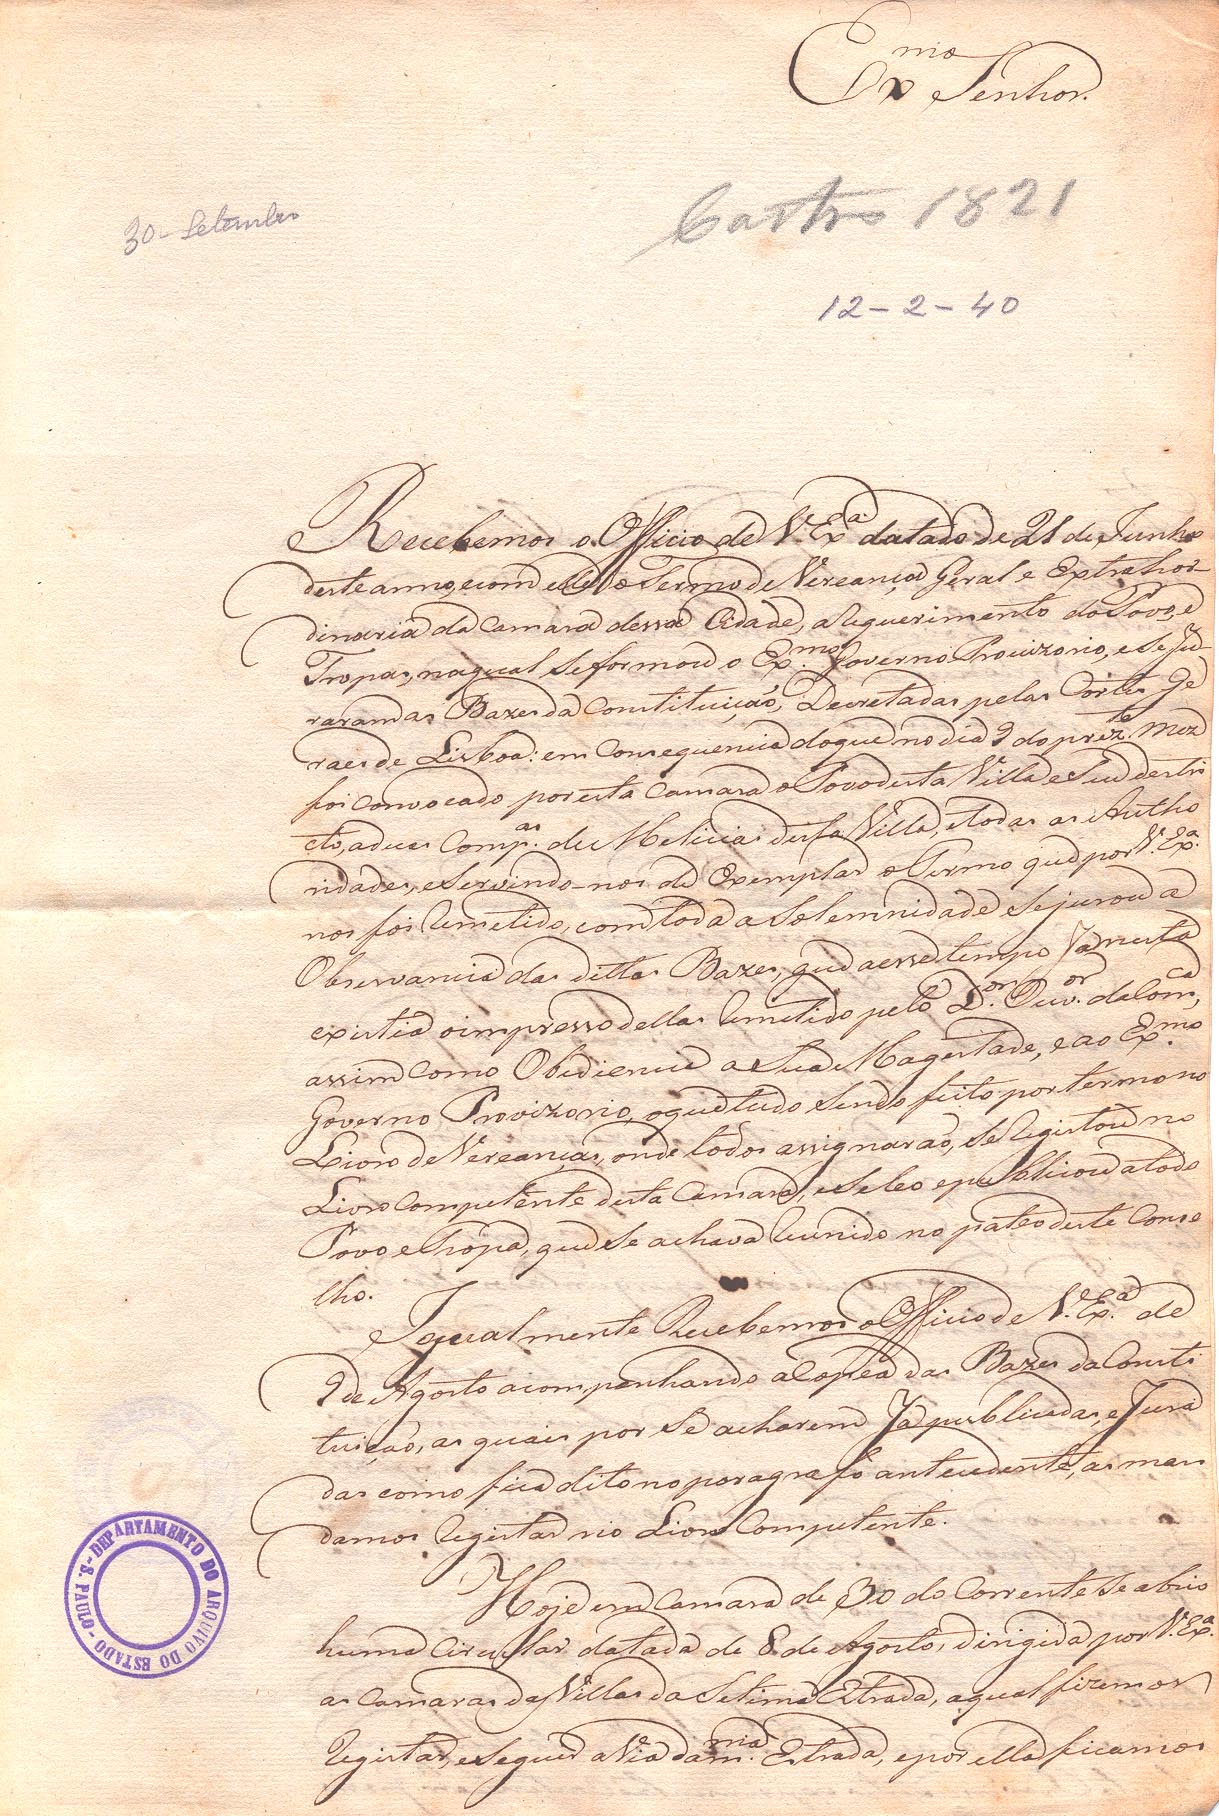 Exmo Senhor.
Castro 1821
30-Setembro
12-2-40
Recebemos o Officio de V. Exa. datado de 21 de Junho
deste anno, e com elle o Termo de Vereança Geral e Extrahor-
dinaria da Camara dessa Cidade, a Requerimento do Povo, e
Tropas, na qual se formou o Exmo. Governo Provizorio, e se Ju
raram as Bazes da Constituição, Decretadas pelas Cortes Ge
raes de Lisboa: em Consequencia do que no dia 9 do prezte. Mez
foi Convocado por esta Camara o Povo desta Villa e Seu destri
cto, aduas Compas. de Melicias desta Villa, e todas as Autho
ridades, e Servindo-nos de Exemplar o Termo que por V. Exa.
nos foi Remetido, com toda a Solemnidade se jurou a
Observancia das dittas Bazes, que a esse tempo Já nesta
existia o impresso dellas Remetido pelo Dor. Ouvor. da Comca,
assim como Obediencia a Sua Magestade, e ao Exmo.
Governo Provizorio, o que tudo sendo feito por termo no
Livro de Vereanças, onde todos assignarão, se Registou no
Livro Competente desta Camara, e se leo e publicou a todo
Povo e Tropa, que se achava Reunido no pateo deste Conse
lho.
Igualmente Recebemos o Officio de V. Exa. de
9 de Agosto acompanhando a Copea das Bazes da Consti
tuição, as quais por se acharem Já publicadas, e Jura
das como fica dito no paragrafo antecedente, as man
damos Registar no Livro Competente.
Hoje em Camara de 30 do Corrente se abrio
huma Circular datada de 8 de Agosto, dirigida por V. Exa.
as Camaras das Villas da Setima Estrada, a qual fizemos
Registar, e seguer a Via da mma. Estrada, e por ella ficamos
DEPARTAMENTO DO ARQUIVO DO ESTADO - S. PAULO -